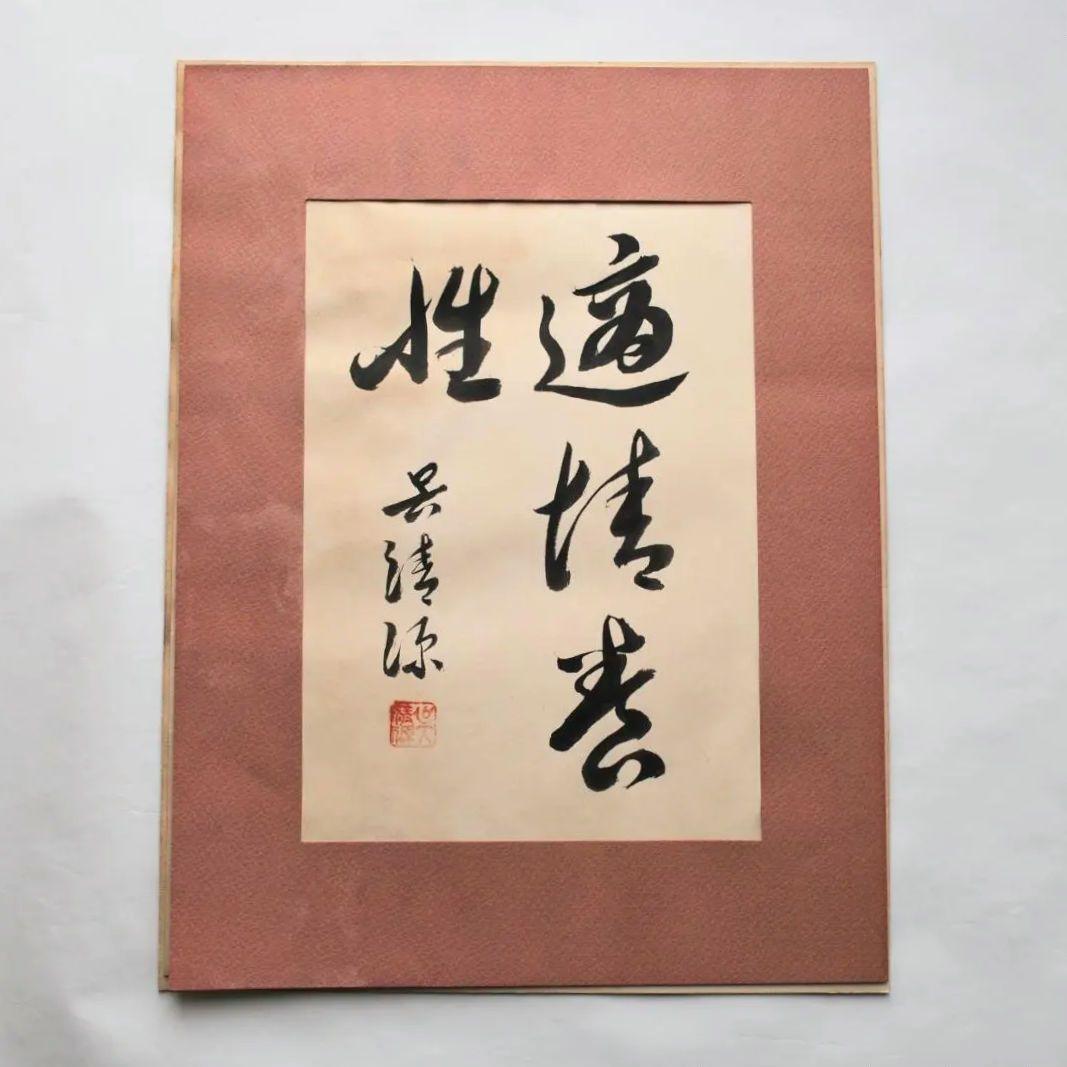 適情養
性
呉清源